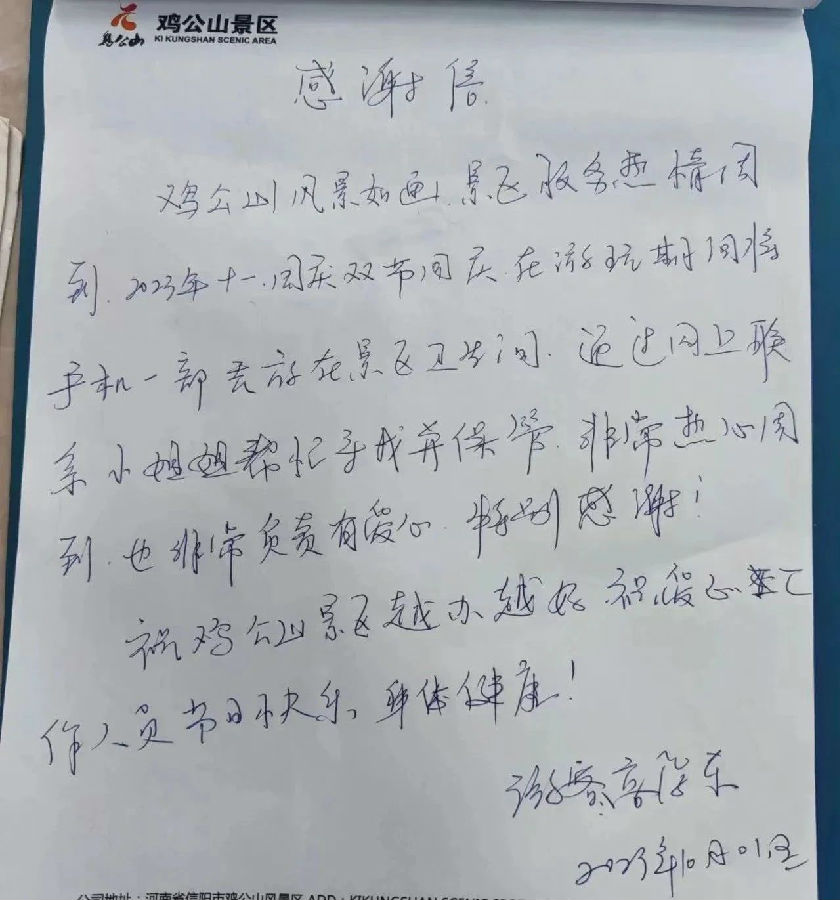 鸡公山
鸡公山景区
KI KUNGSHAN SCENIC AREA
感谢信
鸡公山风景如画，景区服务热情周
到．2023年十一．国庆双节同庆．在游玩期间将
手机一部丢放在景区卫生间．通过网上联
系小姐姐帮忙寻找并保管．非常热心周
到．也非常负责有爱心．特别感谢！
祝鸡公山景区越办越好．祝爱心工
作人员节日快乐，身体健康！
游客高俊东
2023年10月01日
公司地址：河南省信阳市鸡公山风景区 ADD：KIKUNGSHAN SCENIC AREA